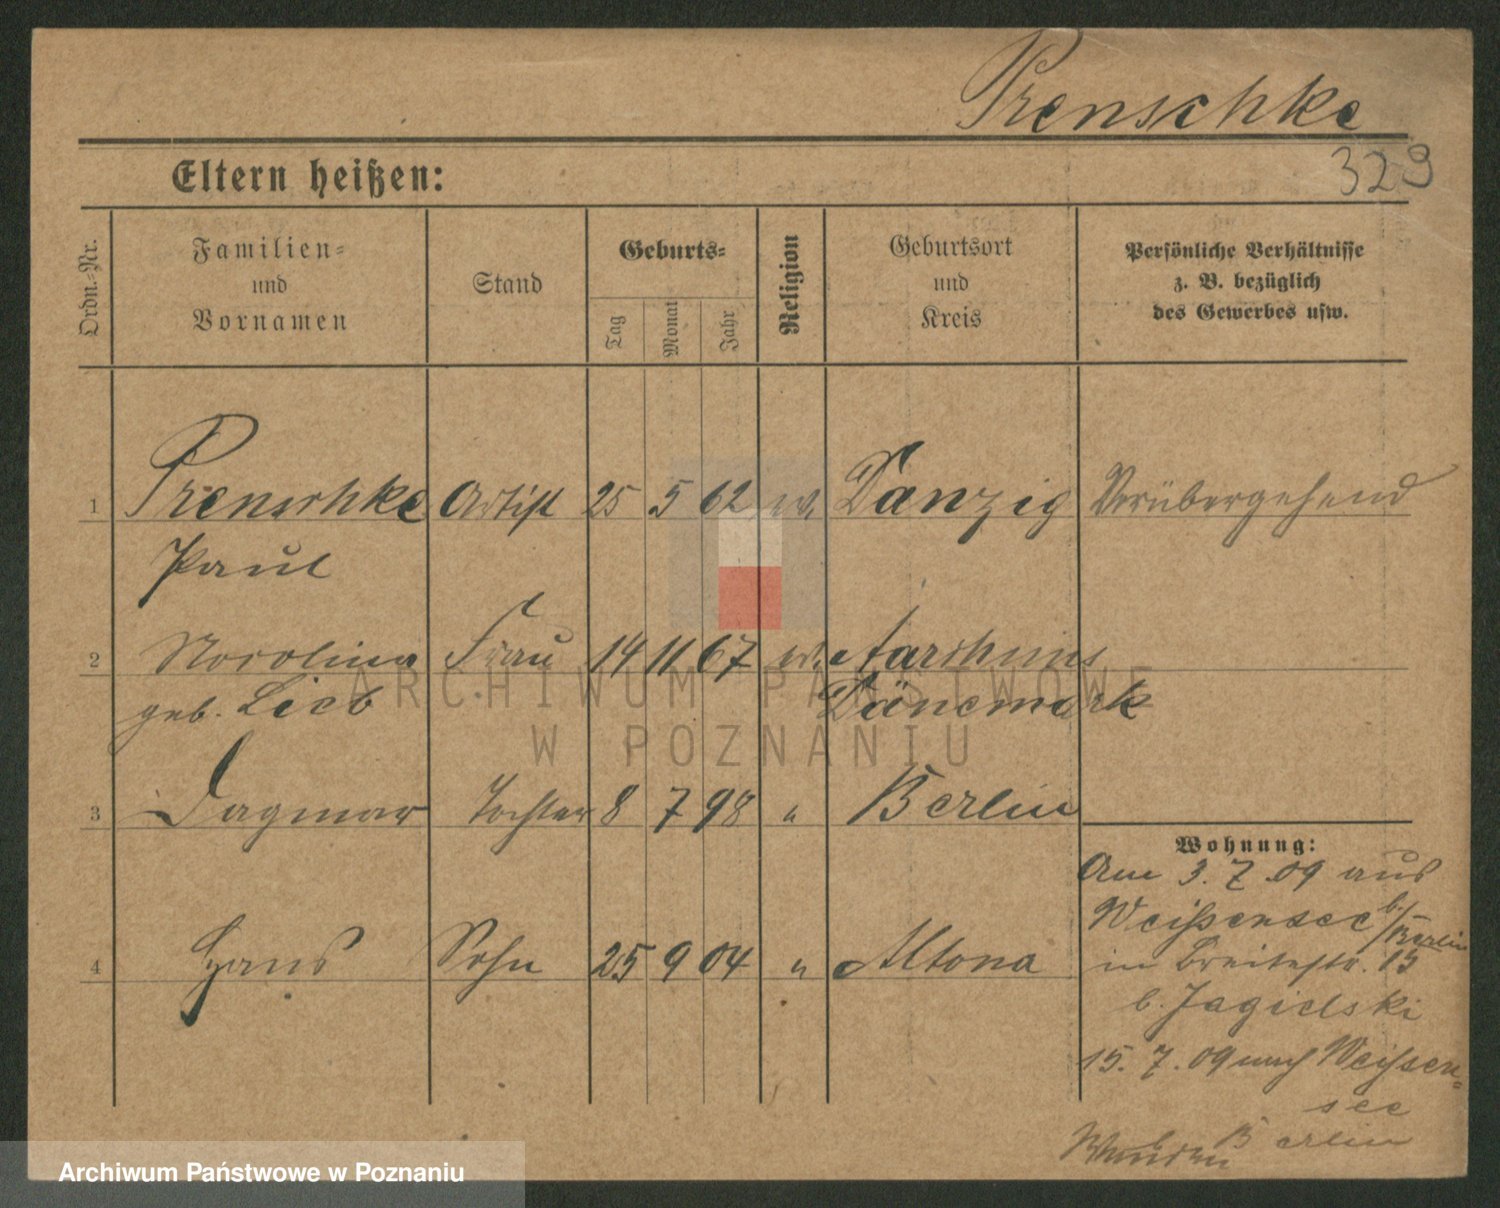 Prenschke
329
Eltern heißen:
Ordn.-Nr.
Familien-
und
Vornamen
Stand
Geburts-
Tag
Monat
Jahr
Religion
Geburtsort
und
Kreis
Persönliche Verhältnisse
z. B. bezüglich
des Gewerbes usw.
1 Prenschke Artist 25 5 62 ev. Danzig Vorübergehend
Paul
2 Frau 14 11 67 ev. Aarhuus
geb. Lieb Dänemark
3 Dagmar Tochter 8 7 98 " Berlin
Wohnung:
Am 3.7.09 aus
Weißensee b/Berlin
4 Hans Sohn 25 9 04 " Altona
in Breitestr. 15
b. Jagielski
15.7.09 nach Weißen-
see
b Berlin
ARCHIWUM PAŃSTWOWE
W POZNANIU
Archiwum Państwowe w Poznaniu